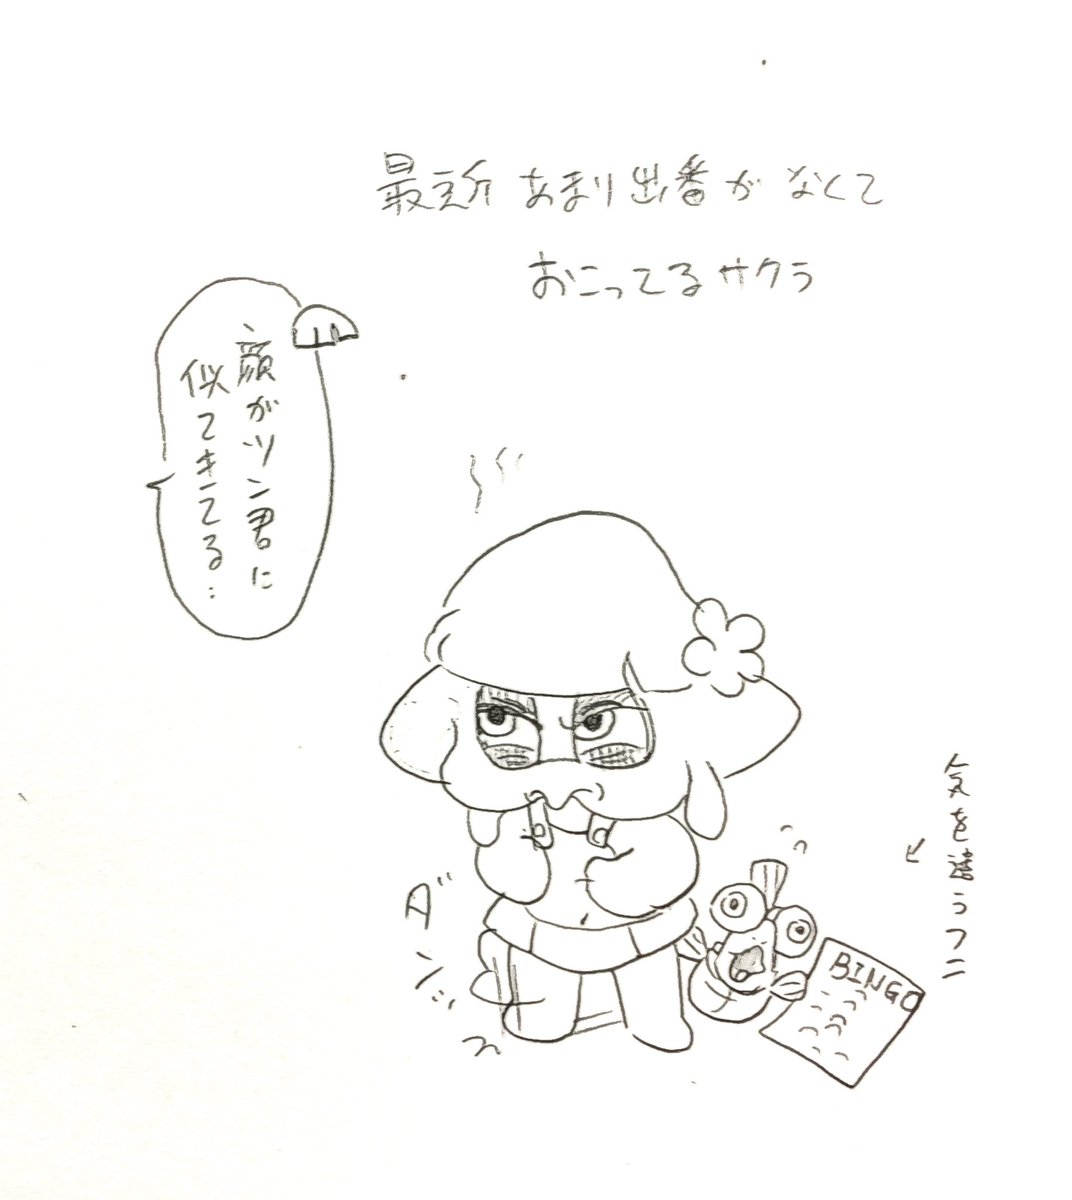 最近あまり出番がなくて
おこってるサクラ
顔がツン君に
似てきてる…
ダンッ
気を遣うフニ
BINGO